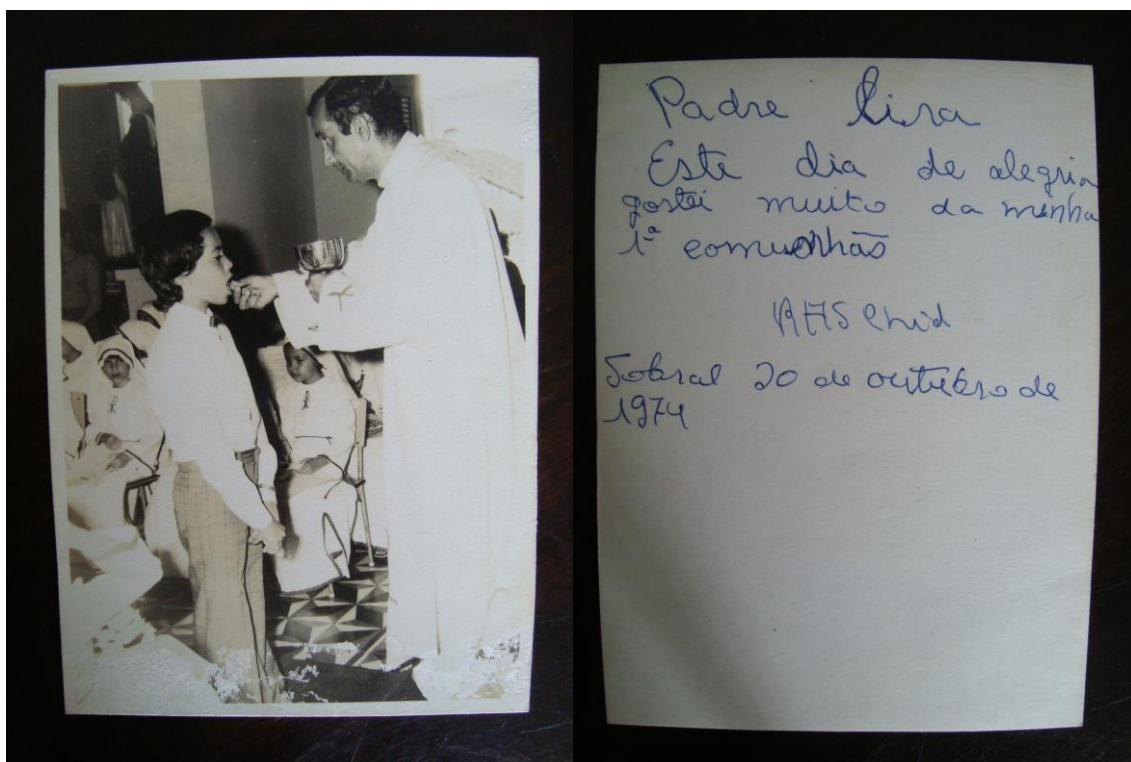 Padre Lira
Este dia de alegria
gostei muito da minha
1ª comunhão
Sobral 20 de outubro de
1974